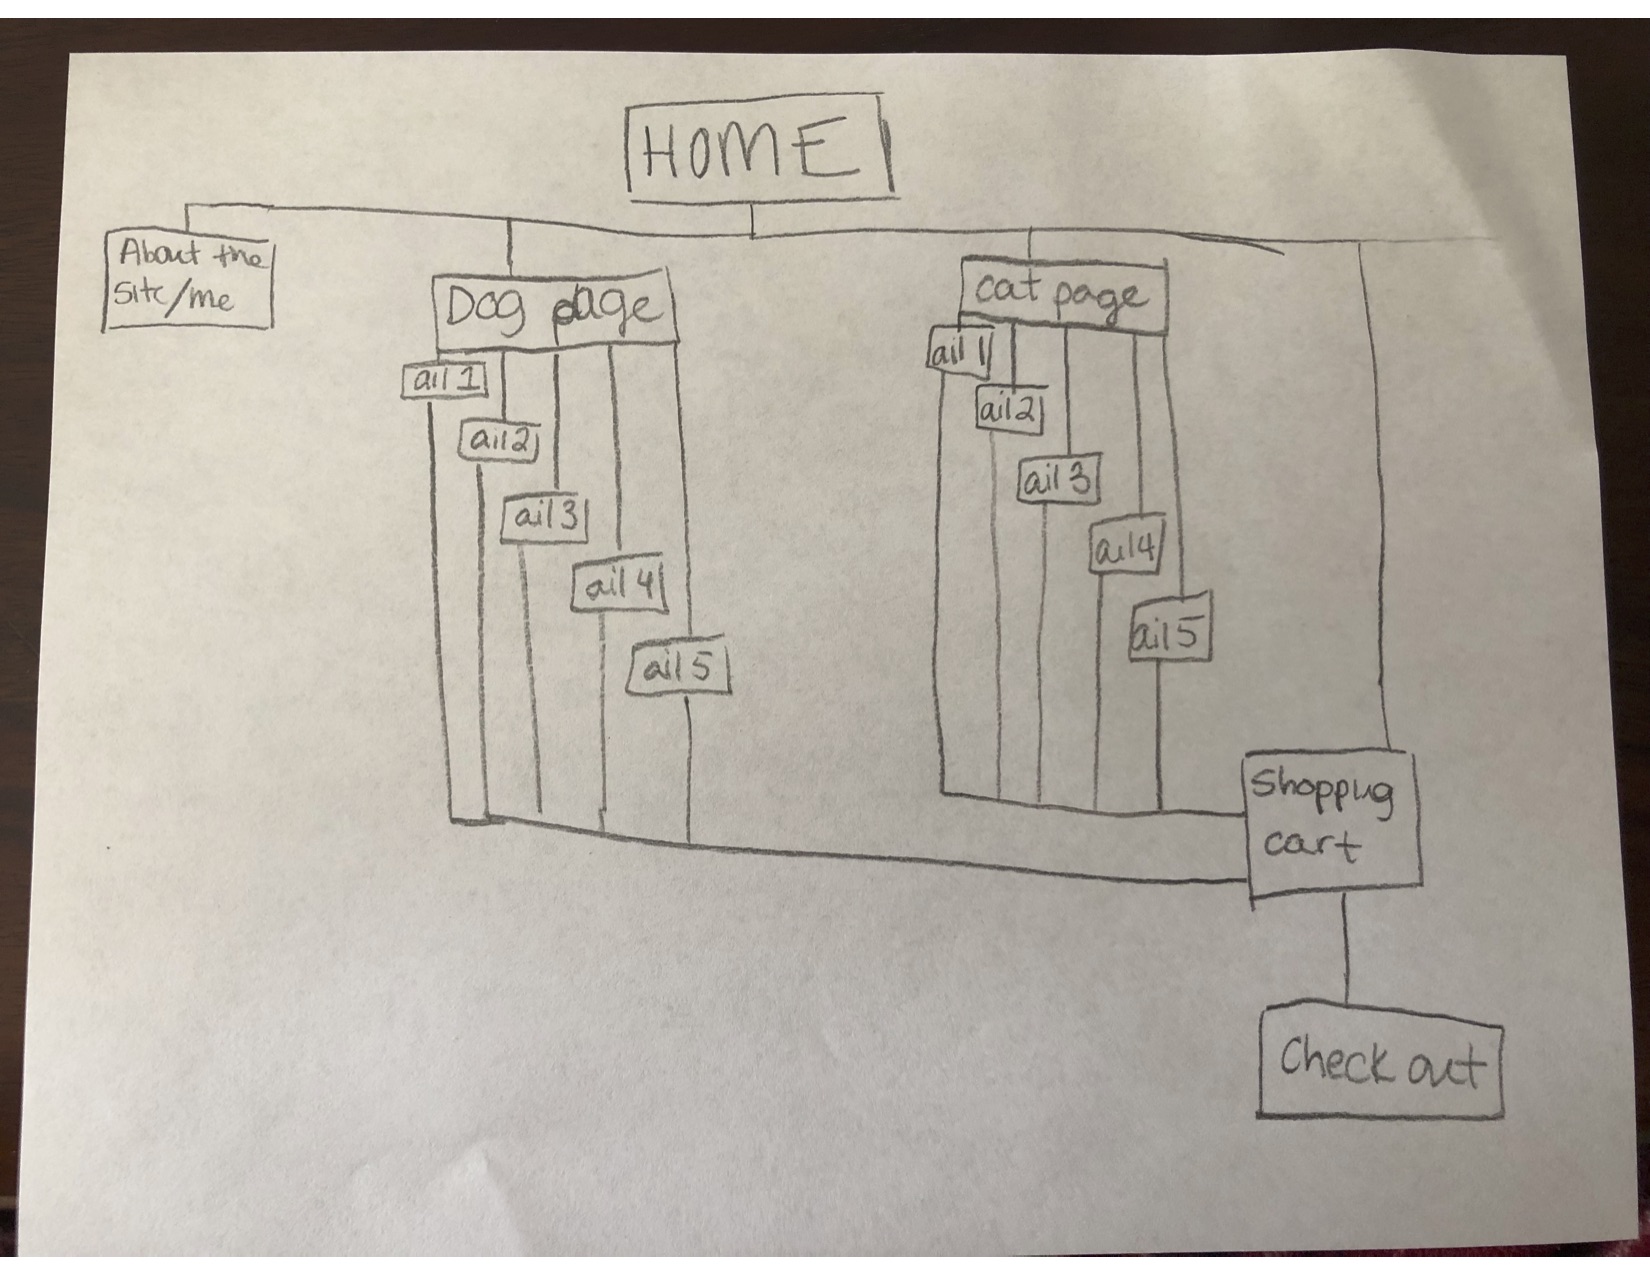 HOME
About the
site/me
Dog page
ail 1
ail 2
ail 3
ail 4
ail 5
cat page
ail 1
ail 2
ail 3
ail 4
ail 5
Shoppug
cart
Check out